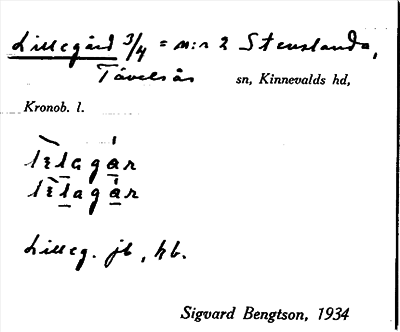 Lillegård 3/4 = n:r 2 Stenslanda,
Tävelsås sn, Kinnevalds hd,
Kronob. l.
Lilleg. jb, hb.
Sigvard Bengtson, 1934